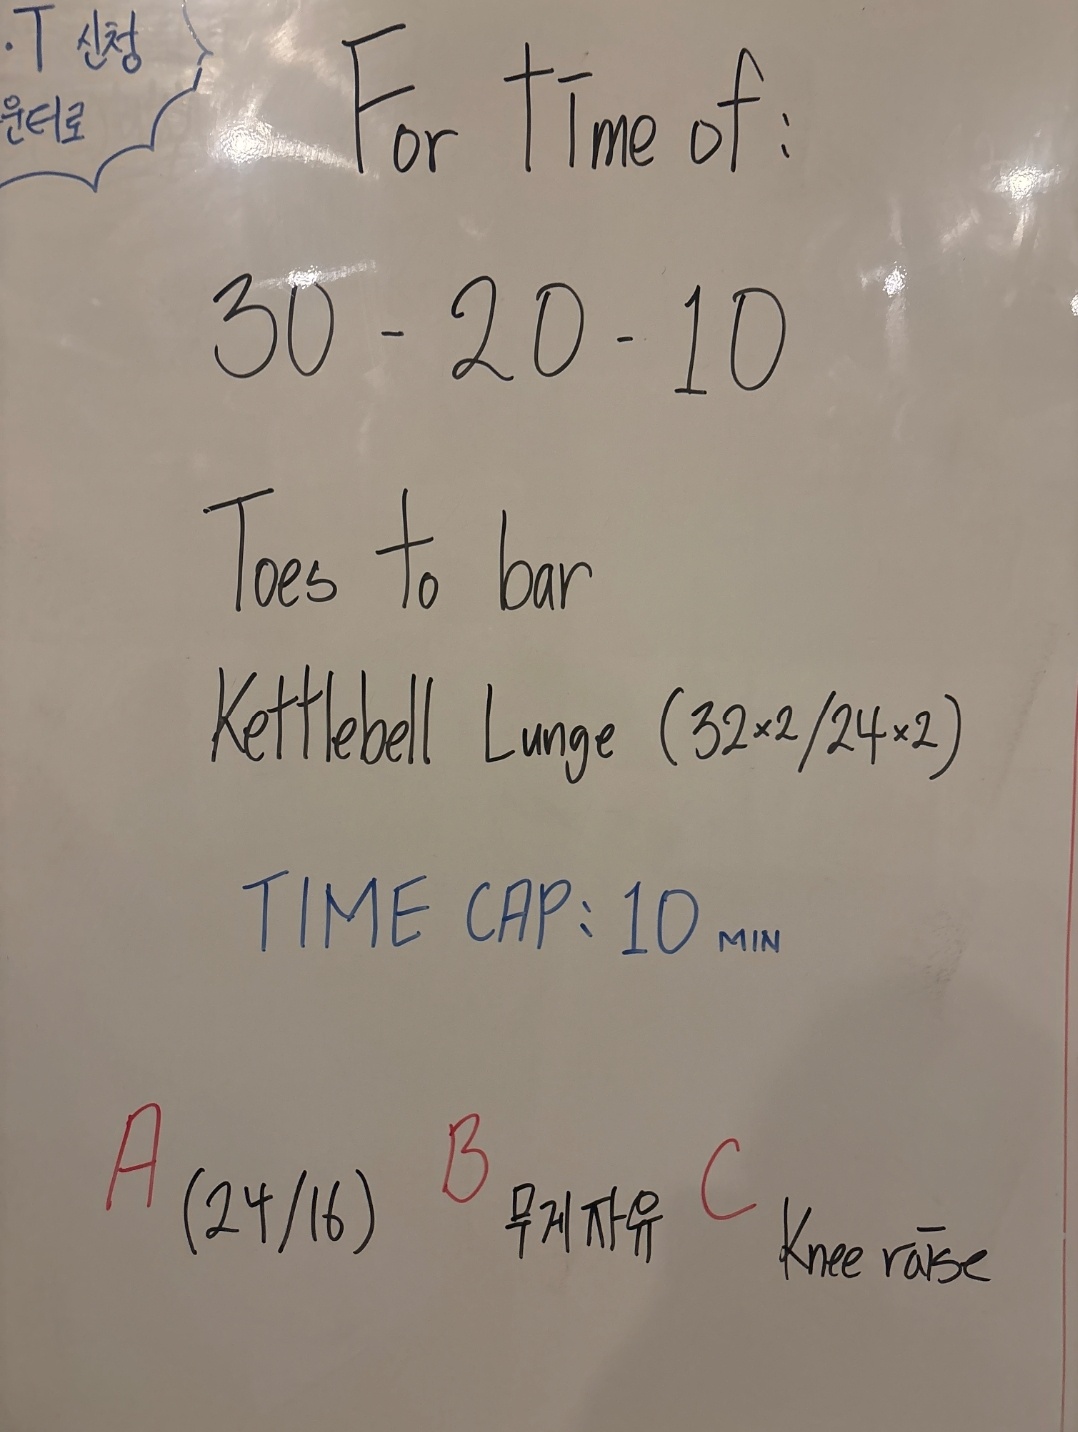 .T 신청
운터로
For time of:
30 - 20 - 10
Toes to bar
Kettlebell Lunge (32x2/24x2)
TIME CAP: 10 MIN
A (24/16) B 무게 자유 C Knee raise